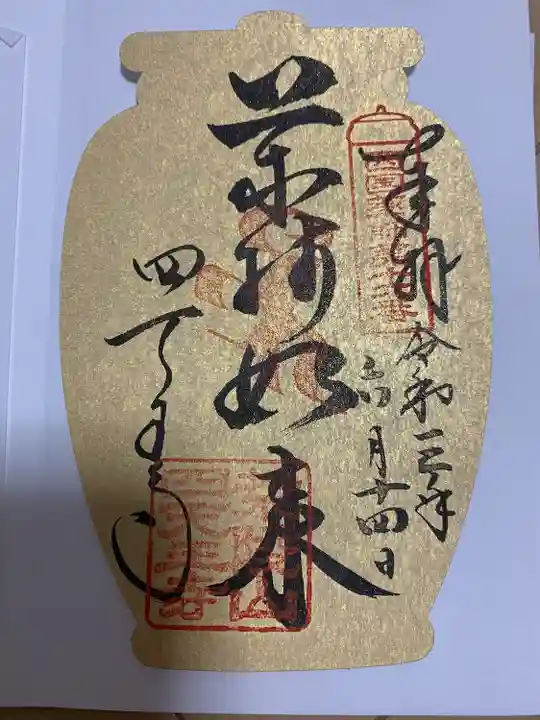 奉拝
令和三年
六月廿四日
薬師如来
四天王寺